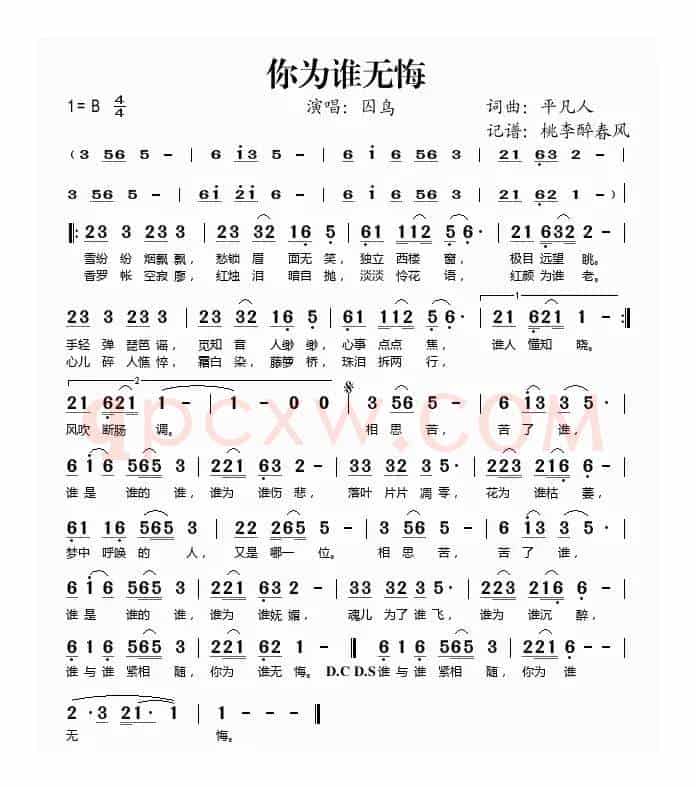 你为谁无悔
1=B 4/4 演唱：囚鸟 词曲：平凡人
记谱：桃李醉春风
( 3 56 5 - | 6 i3 5 - | 6 i 6 56 3 | 21 63 2 - |
3 56 5 - | 6i 2i 6 - | 6 i 6 56 3 | 21 62 1 - ) |
|: 23 3 23 3 | 23 32 16 5 | 61 112 5 6· | 21 6 32 2 - |
雪纷 纷 烟飘 飘， 愁锁 眉 面无 笑， 独立 西楼 窗， 极目 远望 眺。
香罗 帐 空寂 廖， 红烛 泪 暗自 抛， 淡淡 怜花 语， 红颜 为谁 老。
23 3 23 3 | 23 32 16 5 | 61 112 5 6· | 1 21 621 1 - :|
手轻 弹 琵琶 谣， 觅知 音 人缈 缈， 心事 点点 焦， 谁人 懂知 晓。
心儿 碎 人憔 悴， 霜白 染， 藤萝 桥， 珠泪 拆网 行，
2 21 621 1 - | 1 - 0 0 | 3 56 5 - | 6 i3 5 - |
风吹 断肠 调。 相 思 苦， 苦 了 谁，
qpcxw.COM
6 i 6 565 3 | 221 63 2 - | 33 32 34 5· | 221 216 5 - |
谁是 谁的 谁， 谁为 谁伤 悲， 落叶 片片 凋 零， 花为 谁枯 萎，
61 16 565 3 | 22 265 5 - | 3 56 5 - | 6 i3 3 5· |
梦中 呼唤 的 人， 又是 哪一 位。 相 思 苦， 苦 了 谁，
6 i 6 565 3 | 221 63 2 - | 33 32 34 5· | 221 216 5 - |
谁是 谁的 谁， 谁为 谁妩 媚， 魂儿 为了 谁 飞， 谁为 谁沉 醉，
6 1 6 565 3 | 221 62 1 - || 6 1 6 565 3 | 221 6 |
谁与 谁 紧相 随， 你为 谁无 悔。 D.C D.S 谁与 谁 紧相 随， 你为 谁
2 ·3 21· 1 | 1 - - - ||
无 悔。